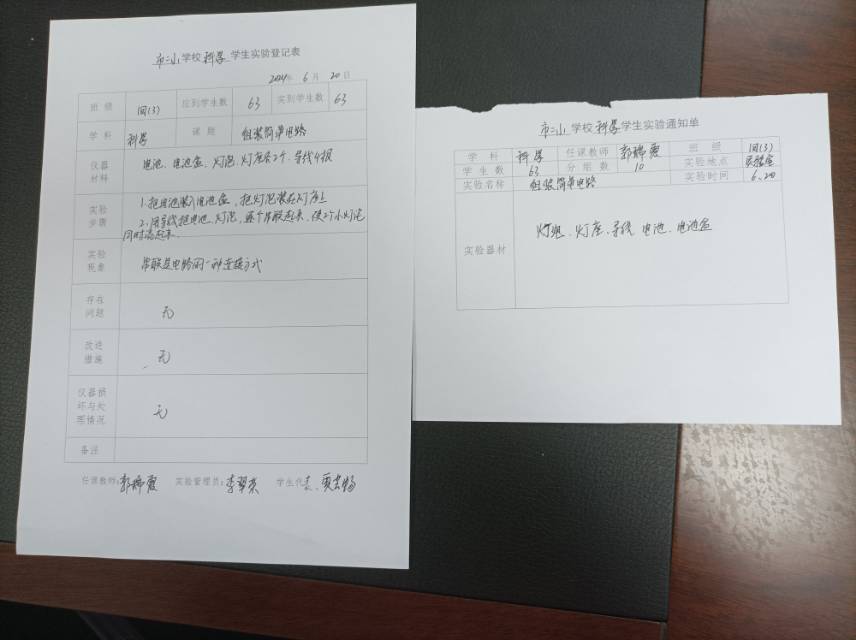 市三小学校科学学生实验登记表
2024年 6 月 20 日
班 级 四(3) 应到学生数 63 实到学生数 63
学 科 科学 课 题 组装简单电路
仪器材料 电池、电池盒、灯泡、灯座各2个、导线4根
实验步骤 1、把电池装入电池盒,把灯泡装在灯座上
2、用导线把电池、灯泡,逐个串联起来,使2个小灯泡
同时亮起来。
实验现象 串联是电路的一种连接方式
存在问题 无
改进措施 无
仪器损坏与处理情况 无
备注
任课教师:郭瑞霞 实验管理员:李翠 学生代表:
市三小学校科学学生实验通知单
学 科 科学 任课教师 郭瑞霞 班 级 四(3)
学 生 数 63 分 组 数 10 实验地点 实验室
实验名称 组装简单电路 实验时间 6、20
实验器材 灯泡、灯座、导线 电池、电池盒